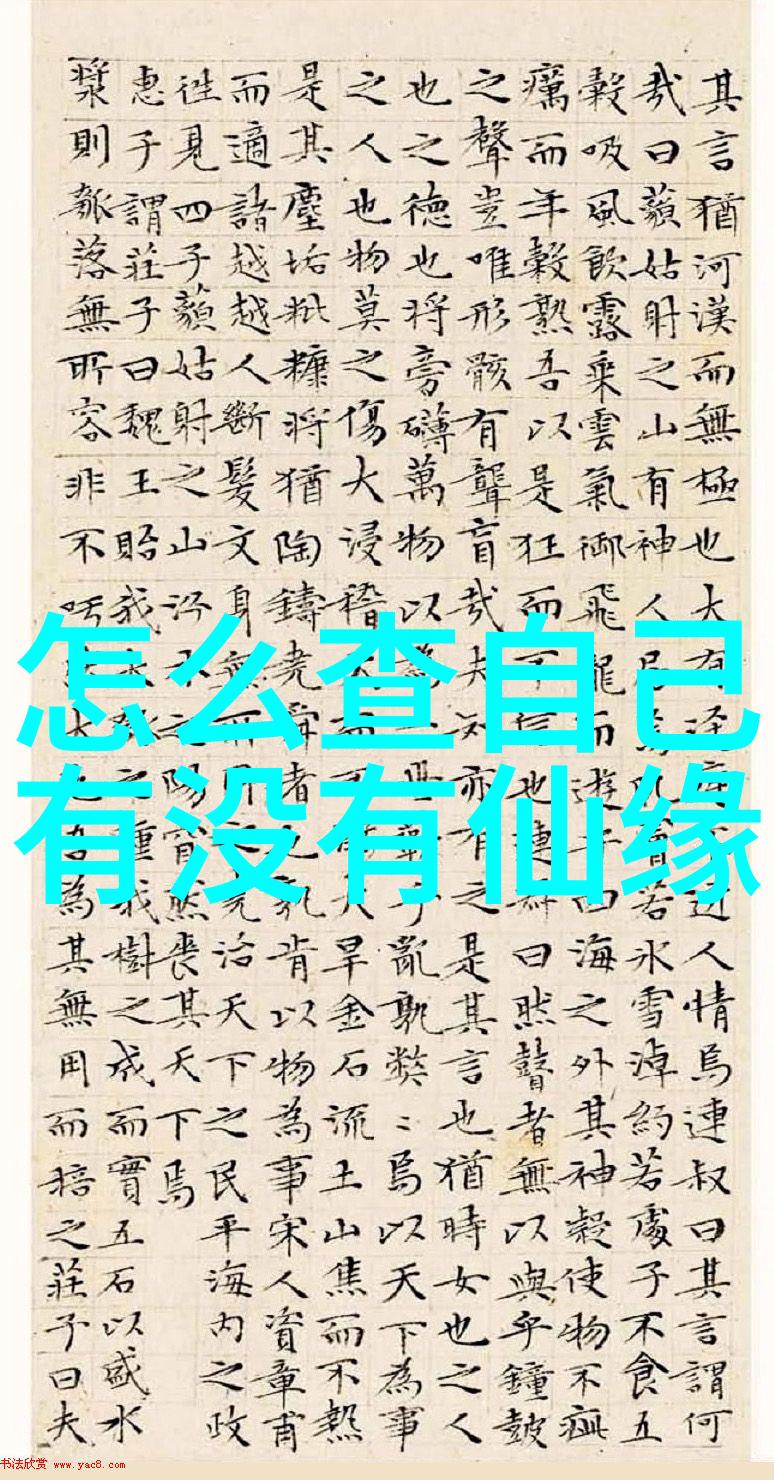 其言猶河漢而無極也大有逕庭不近人情焉連叔曰其言謂何
哉曰藐姑射之山有神人居焉肌膚若冰雪淖約若處子不食五
穀吸風飲露乘雲氣御飛龍而遊乎四海之外其神凝使物不疵
癘而年穀熟吾以是狂而不信也連叔曰然瞽者無以與乎鐘鼓
之聲豈唯形骸有聾盲哉夫知亦有之是其言也猶時女也之人
也之德也將旁礴萬物以為一世蘄乎亂孰弊〻焉以天下為事
之人也物莫之傷大浸稽天而不溺大旱金石流土山焦而不熱
是其塵垢粃糠將猶陶鑄堯舜者也孰肯以物為事宋人資章甫
而適諸越越人斷髮文身無所用之堯治天下之民平海內之政
往見四子藐姑射之山汾水之陽窅然喪其天下焉
惠子謂莊子曰魏王貽我大瓠之種我樹之成而實五石以盛水
漿則瓠落無所容非不呺然大也吾為其無用而掊之莊子曰夫
怎么查自己
有没有仙缘
书法欣赏 www.yac8.com